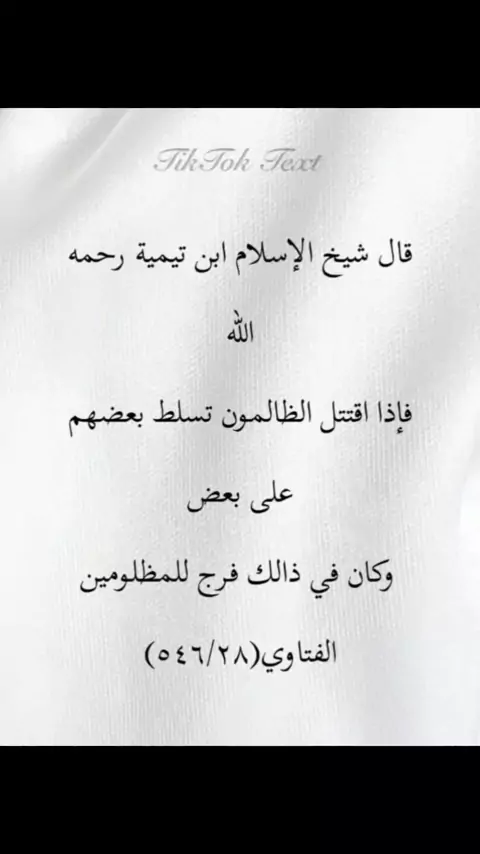 TikTok Text
قال شيخ الإسلام ابن تيمية رحمه
الله
فإذا اقتتل الظالمون تسلط بعضهم
على بعض
وكان في ذالك فرج للمظلومين
الفتاوي(٥٤٦/٢٨)